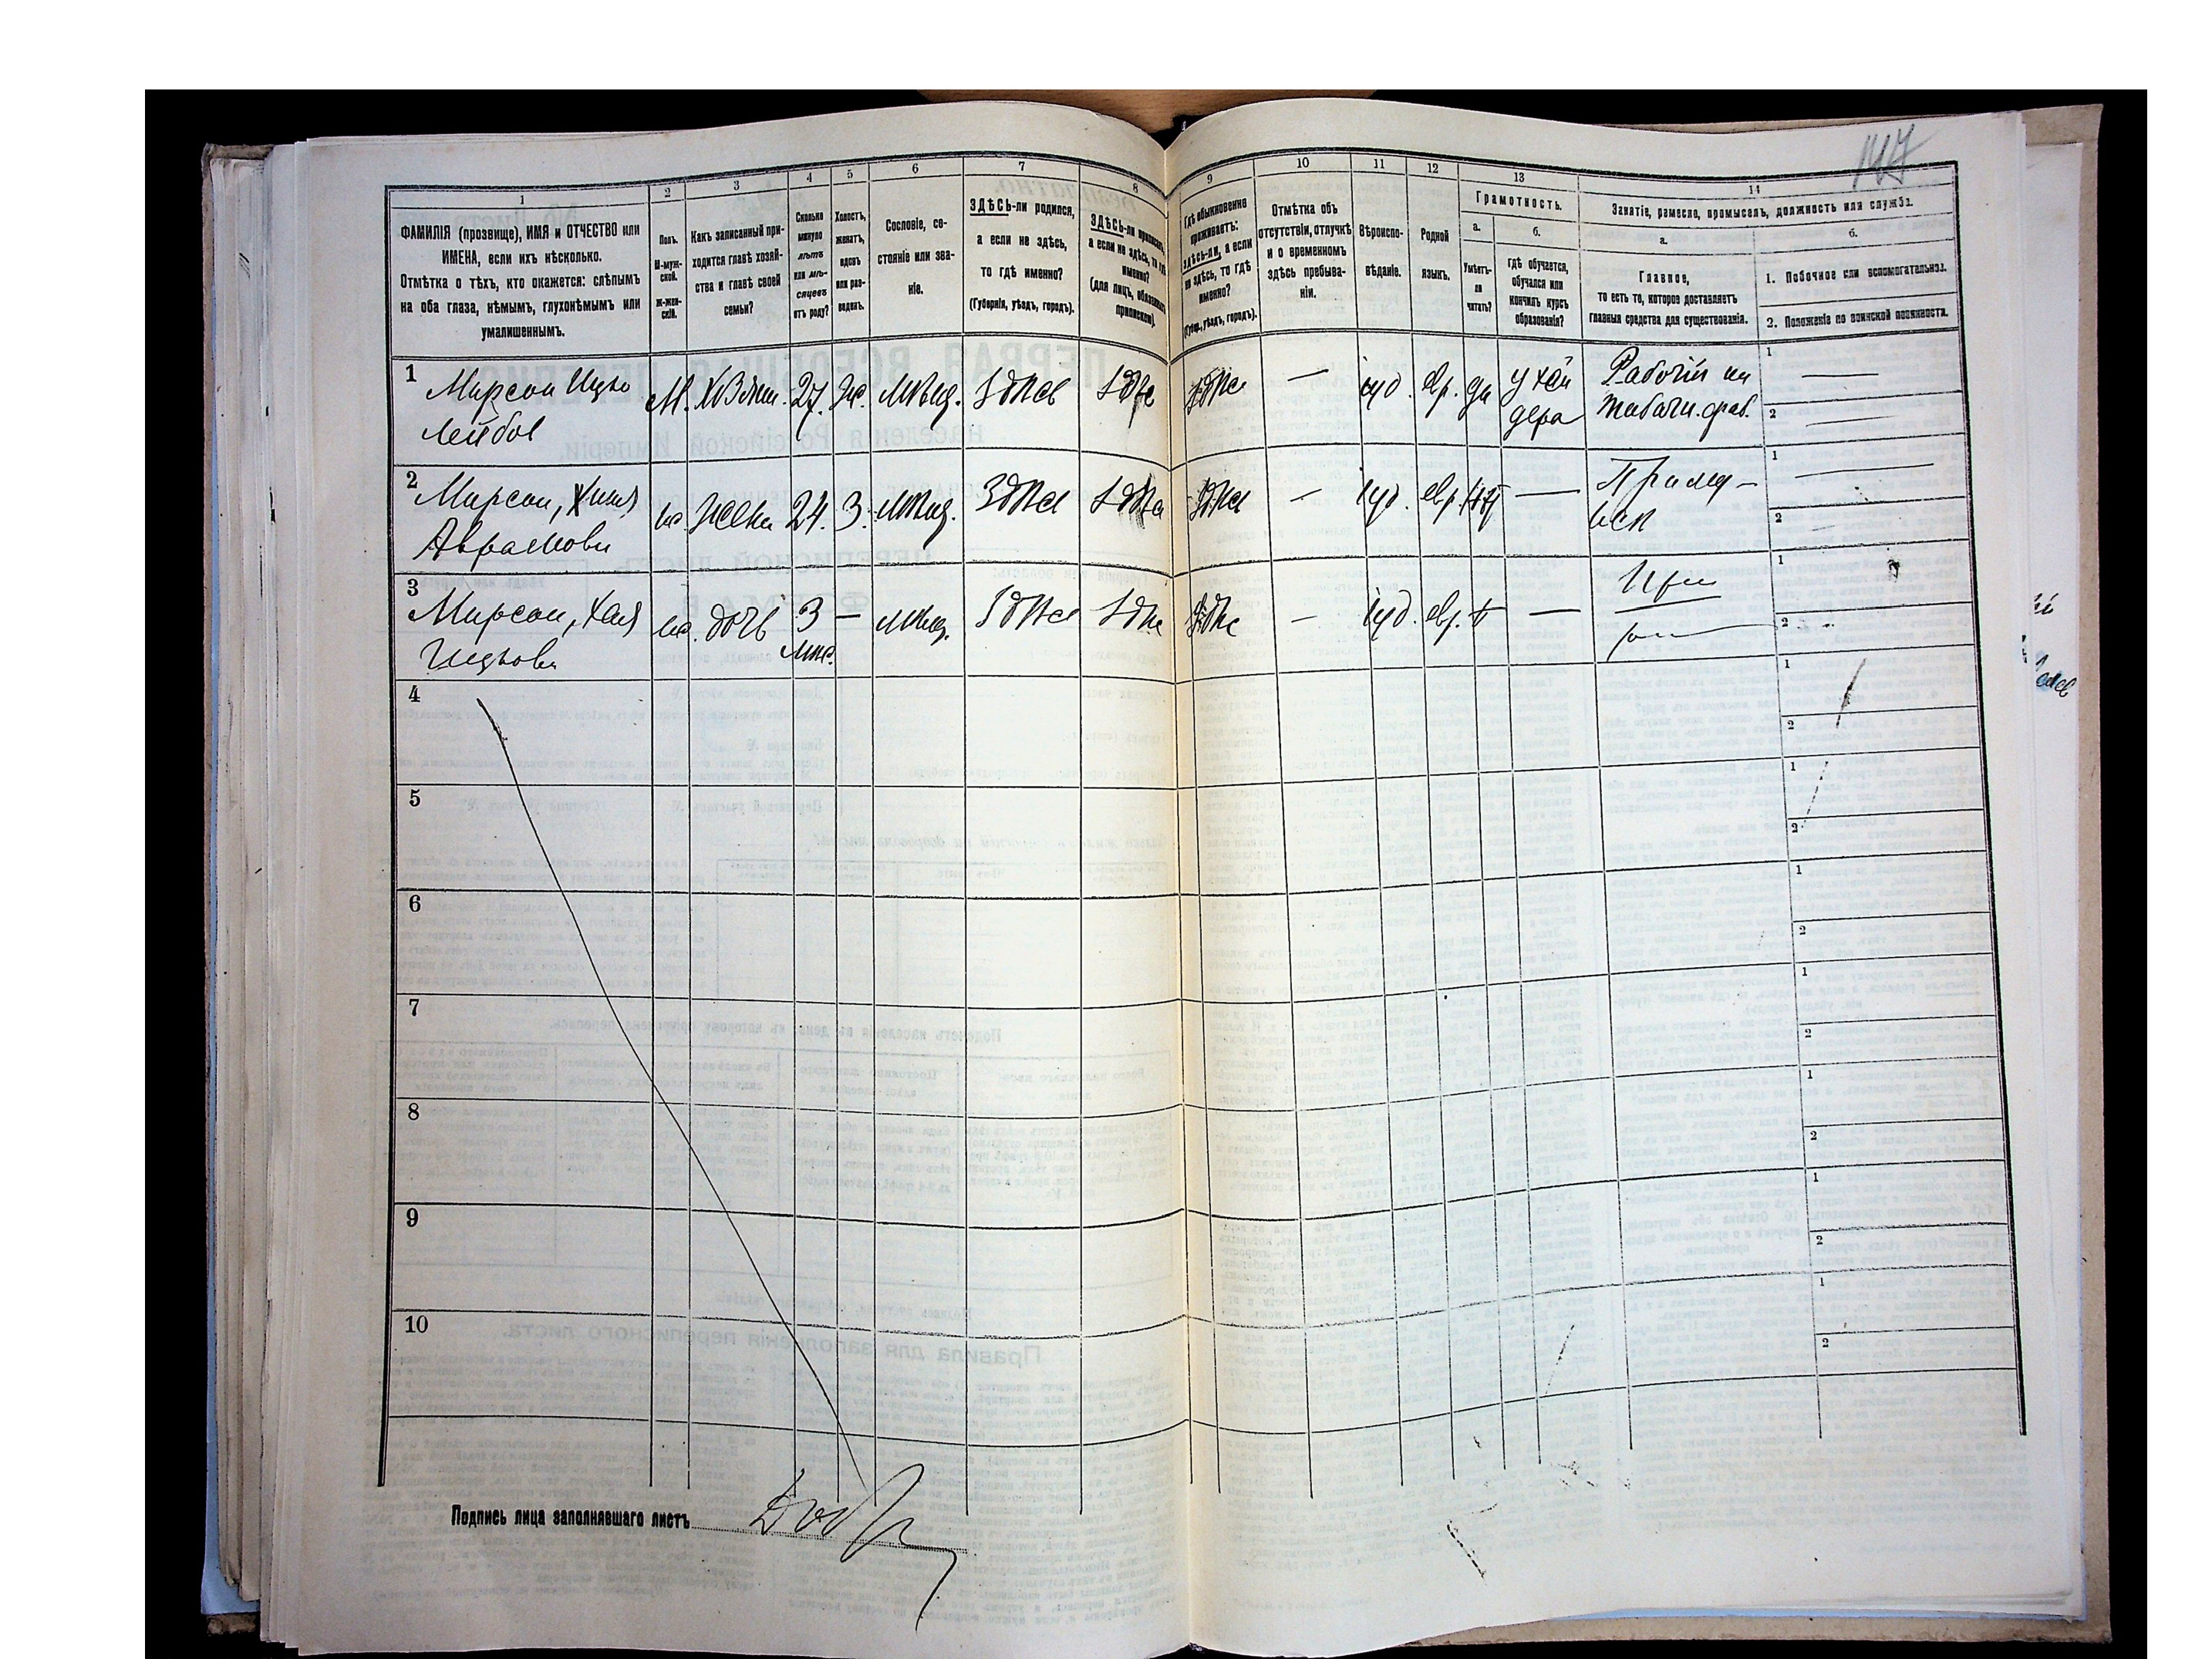 147
1
2
3
4
5
6
7
8
9
10
11
12
13
14
ФАМИЛІЯ (прозвище), ИМЯ и ОТЧЕСТВО или
ИМЕНА, если ихъ нѣсколько.
Отмѣтка о тѣхъ, кто окажется: слѣпымъ
на оба глаза, нѣмымъ, глухонѣмымъ или
умалишеннымъ.
Полъ.
М-муж-
ской.
Ж-жен-
скій.
Какъ записанный при-
ходится главѣ хозяй-
ства и главѣ своей
семьи?
Сколько
минуло
лѣтъ
или мѣ-
сяцевъ
отъ роду?
Холостъ,
женатъ,
вдовъ
или раз-
веденъ.
Сословіе, со-
стояніе или зва-
ніе.
ЗДѢСЬ-ли родился,
а если не здѣсь,
то гдѣ именно?
(Губернія, уѣздъ, городъ).
ЗДѢСЬ-ли приписанъ,
а если не здѣсь, то гдѣ
именно?
(для лицъ, обязанныхъ
припиской).
Гдѣ обыкновенно
проживаетъ:
здѣсь-ли, а если
не здѣсь, то гдѣ
именно?
(Губер., уѣздъ, городъ).
Отмѣтка объ
отсутствіи, отлучкѣ
и о временномъ
здѣсь пребыва-
ніи.
Вѣроиспо-
вѣданіе.
Родной
языкъ.
Грамотность.
а.
Умѣетъ-
ли
читать?
б.
гдѣ обучается,
обучался или
кончилъ курсъ
образованія?
Занятіе, ремесло, промыселъ, должность или служба.
а.
Главное,
то есть то, которое доставляетъ
главныя средства для существованія.
б.
1. Побочное или вспомогательное.
2. Положеніе по воинской повинности.
1 Мирсон Ицко М. Хозяин. 27. Ж. Мѣщ. Здѣсь Здѣсь Здѣсь — іуд. евр. да у хай Рабочій на 1 —
Лейбов дера Табачн. фаб. 2 —
2 Мирсон, Хиня ж. Жена 24. З. Мѣщ. Здѣсь Здѣсь Здѣсь — іуд. евр. нѣт — 1 —
Аврамова 2 —
3 Мирсон, Хая ж. дочь 3 — Мѣщ. Здѣсь Здѣсь Здѣсь — іуд. евр. — При 1
Ицкова мѣс. 2
4 1
2
5 1
2
6 1
2
7 1
2
8 1
2
9 1
2
10 1
2
Подпись лица заполнявшаго листъ